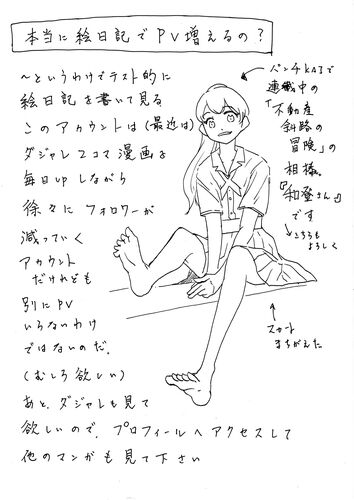 本当に絵日記でPV増えるの?
〜というわけでテスト的に
絵日記を書いて見る
このアカウントは(最近は)
ダジャレ2コマ漫画を
毎日upしながら
徐々にフォロワーが
減っていく
アカウント
だけれども
別にPV
いらないわけ
ではないのだ。
(むしろ欲しい)
あと、ダジャレも見て
欲しいので、プロフィールへアクセスして
他のマンガも見て下さい
連載中の
「不動産
斜路の
冒険」の
相棒。
『和登さん』
です
こちらも
よろしく
スカート
まちがえた